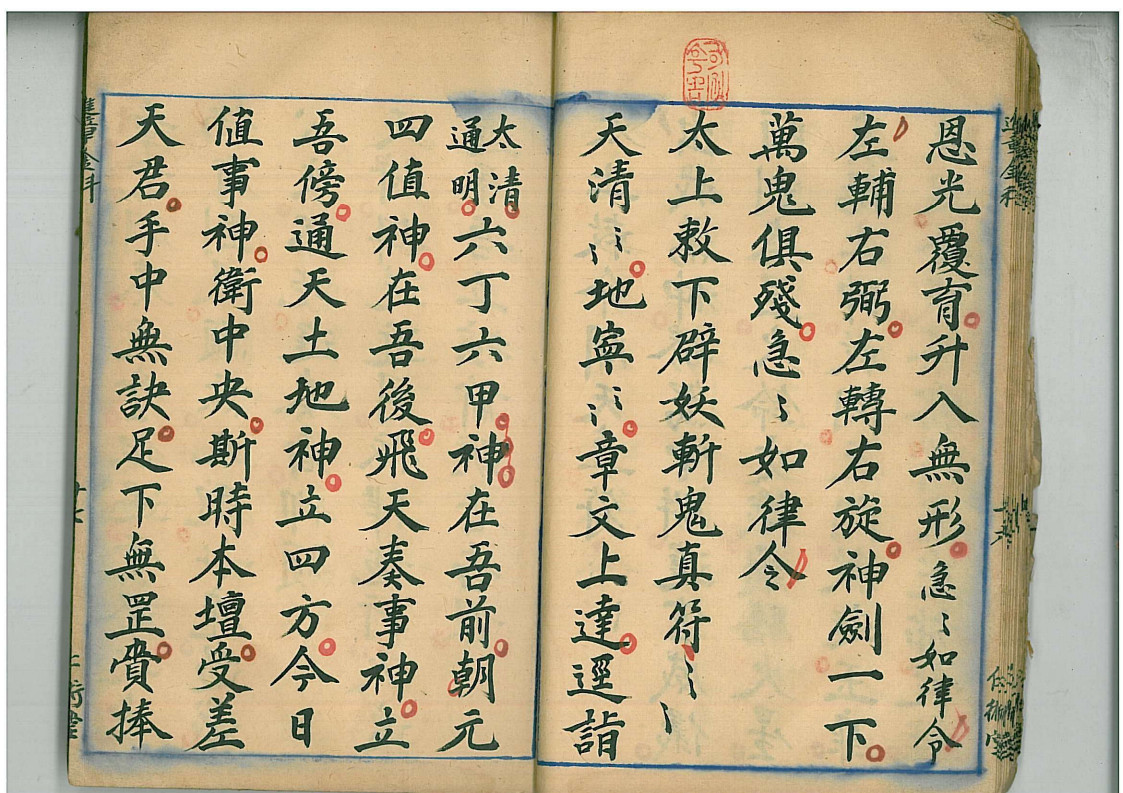 恩光覆育升入無形急〻如律令
左輔右弼左轉右旋神劍一下
萬鬼俱殘急〻如律令
太上敕下辟妖斬鬼真符〻〻〻
天清〻〻地寧〻〻章文上達逕詣
太清
通明六丁六甲神在吾前朝元
四值神在吾後飛天奏事神立
吾傍通天土地神立四方今日
值事神衛中央斯時本壇受差
天君手中無訣足下無罡賫捧
進章金科